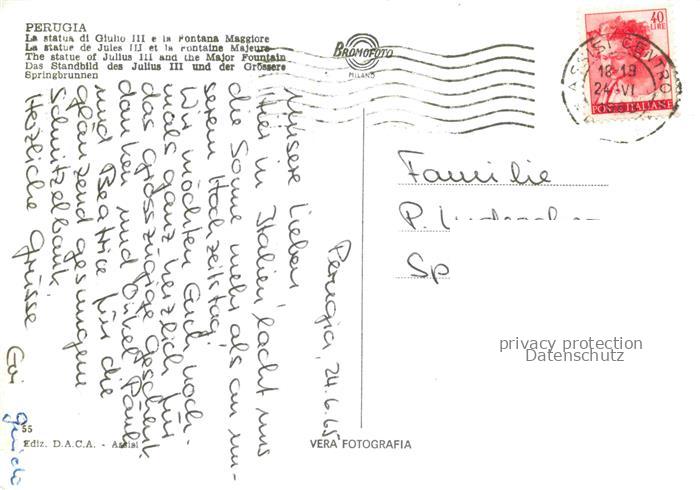 PERUGIA
La statua di Giulio III e la Fontana Maggiore
La statue de Jules III et la Fontaine Majeure
The statue of Julius III and the Major Fountain
Das Standbild des Julius III und der Grössere
Springbrunnen
BROMOFOTO
MILANO
40
LIRE
POSTE ITALIANE
ASSISI CENTRO
18-19
24 VI
Perugia, 24.6.65
Unsere Lieben
Hier in Italien lacht uns
die Sonne mehr als an un-
serem Hochzeitstag.
Wir möchten Euch noch-
mals ganz herzlich für
das grosszügige Geschenk
danken und Onkel Paul
und Beatrice für die
glänzend gesungene
Schnitzelbank.
Herzliche Grüsse
Familie
P.
Sp
privacy protection
Datenschutz
55
Ediz. D.A.C.A. - Assisi
VERA FOTOGRAFIA